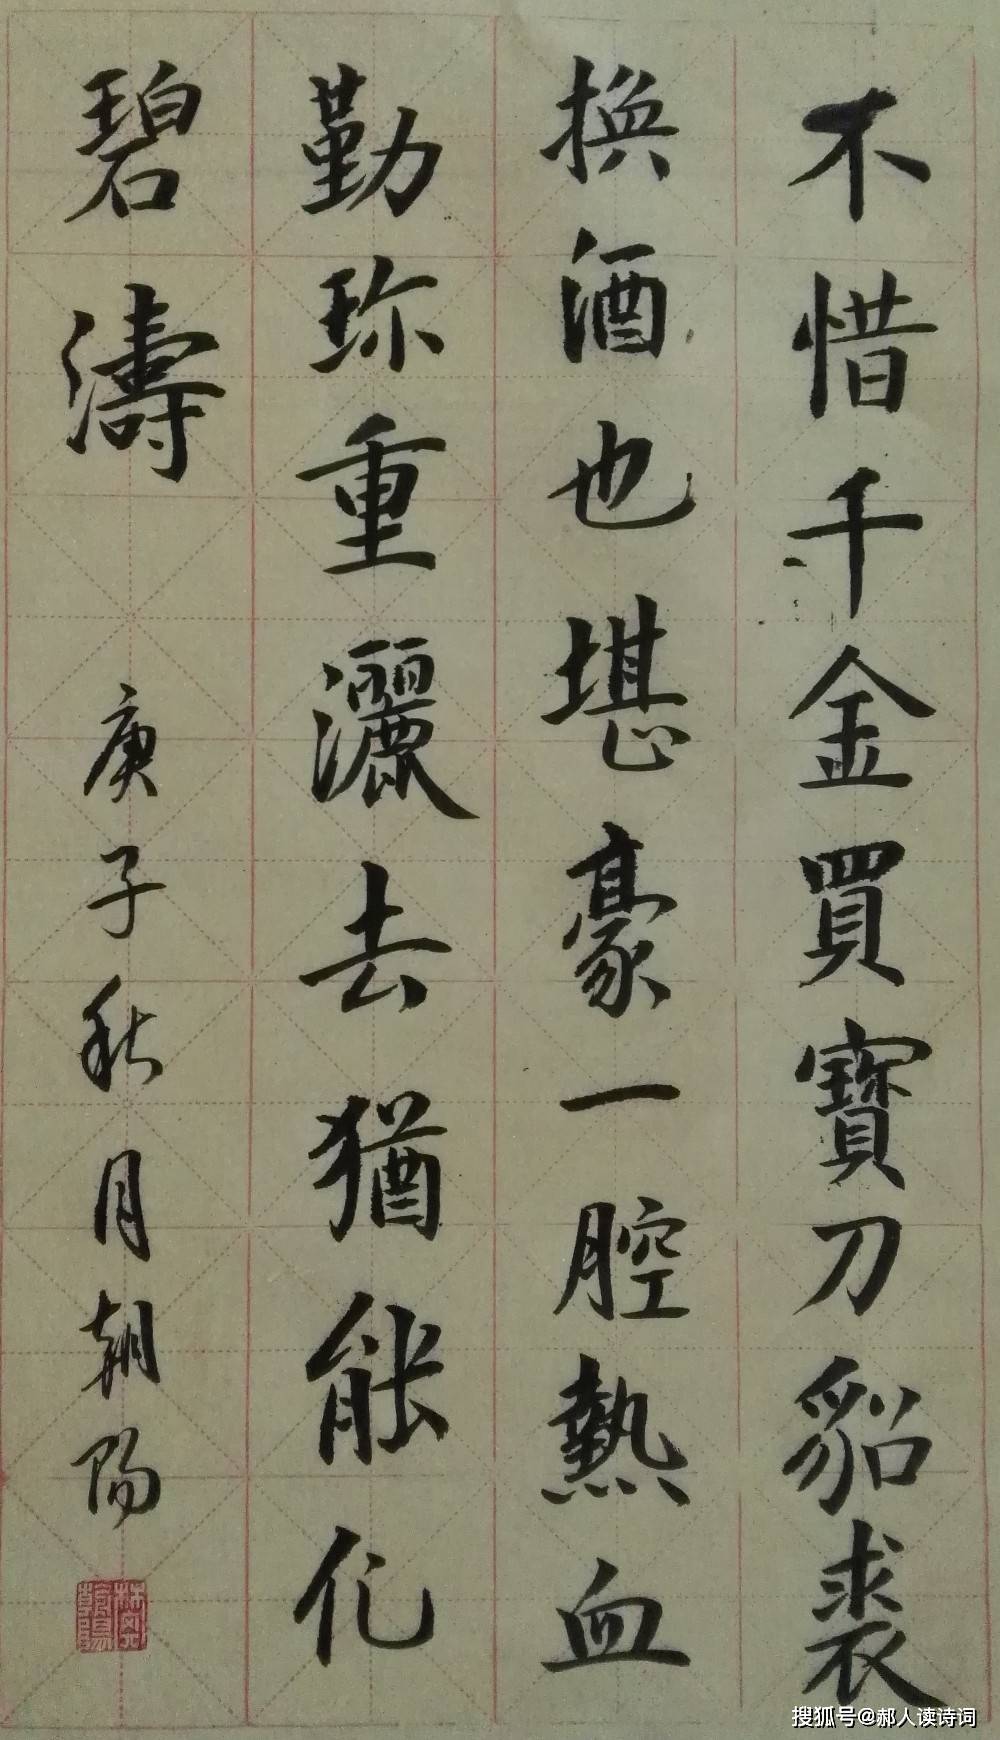 不惜千金買寶刀貂裘
換酒也堪豪一腔熱血
勤珎重灑去猶能化
碧濤
庚子秋月朝陽
搜狐号@郝人读诗词